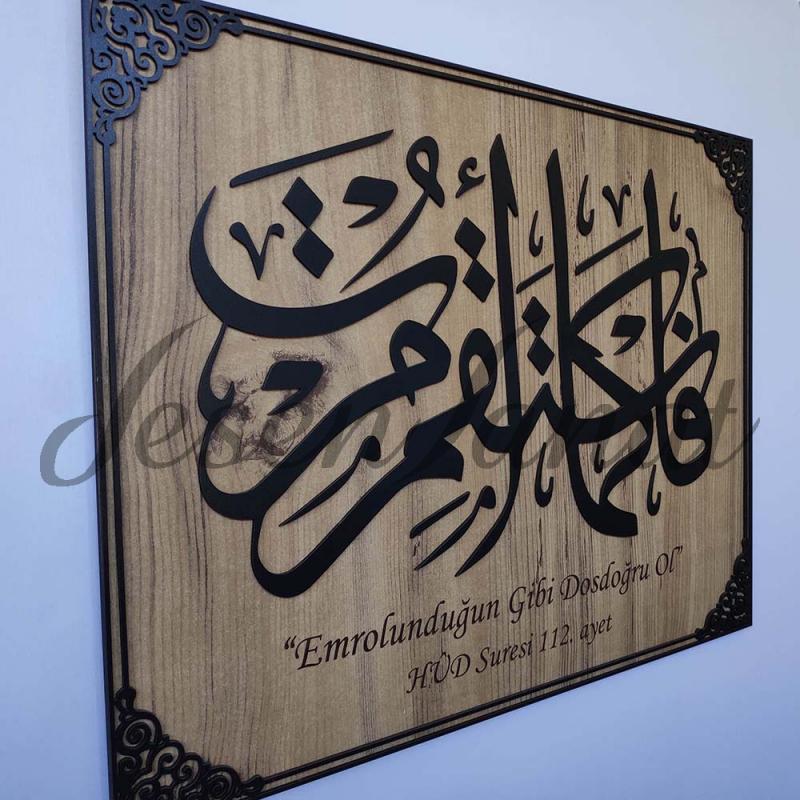 فَاسْتَقِمْ كَمَا أُمِرْتَ
“Emrolunduğun Gibi Dosdoğru Ol”
HÛD Suresi 112. ayet
desen sanat